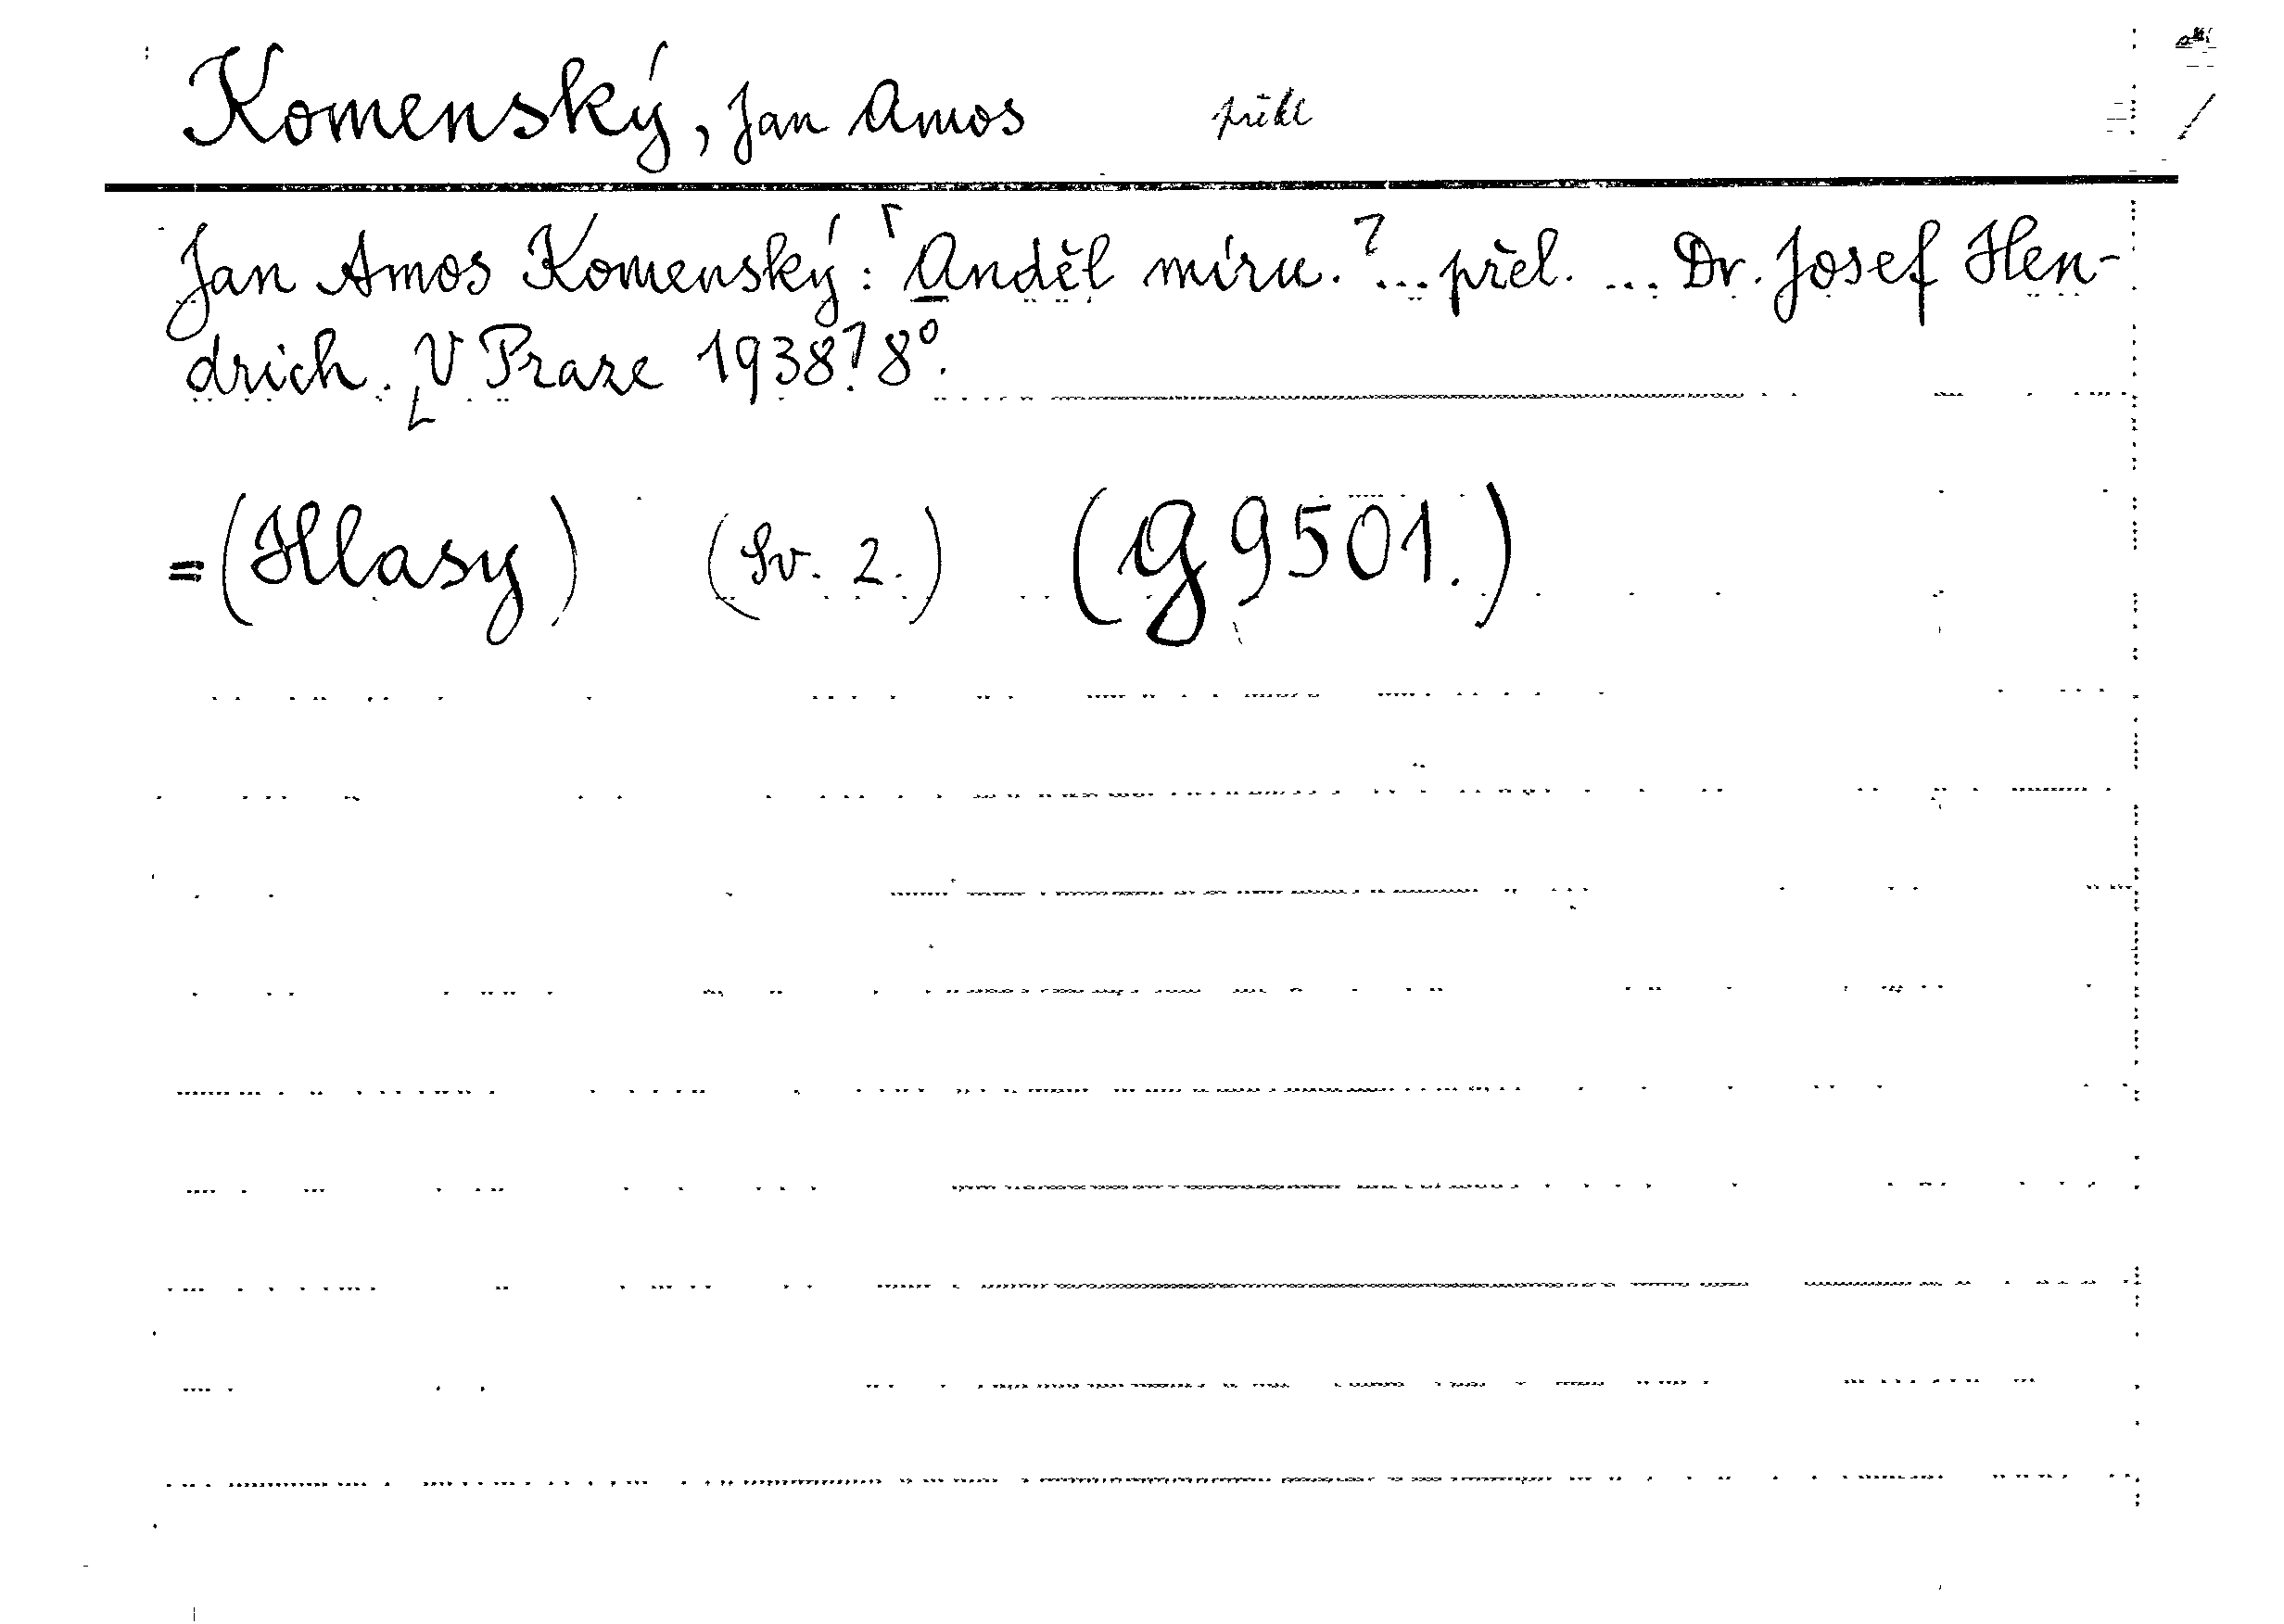 Komenský, Jan Amos překl
Jan Amos Komenský: Anděl míru. ... přel. ... Dr. Josef Hen-
drich. V Praze 1938. 8°.
=(Hlasy) (Sv. 2.) (G 9501.)